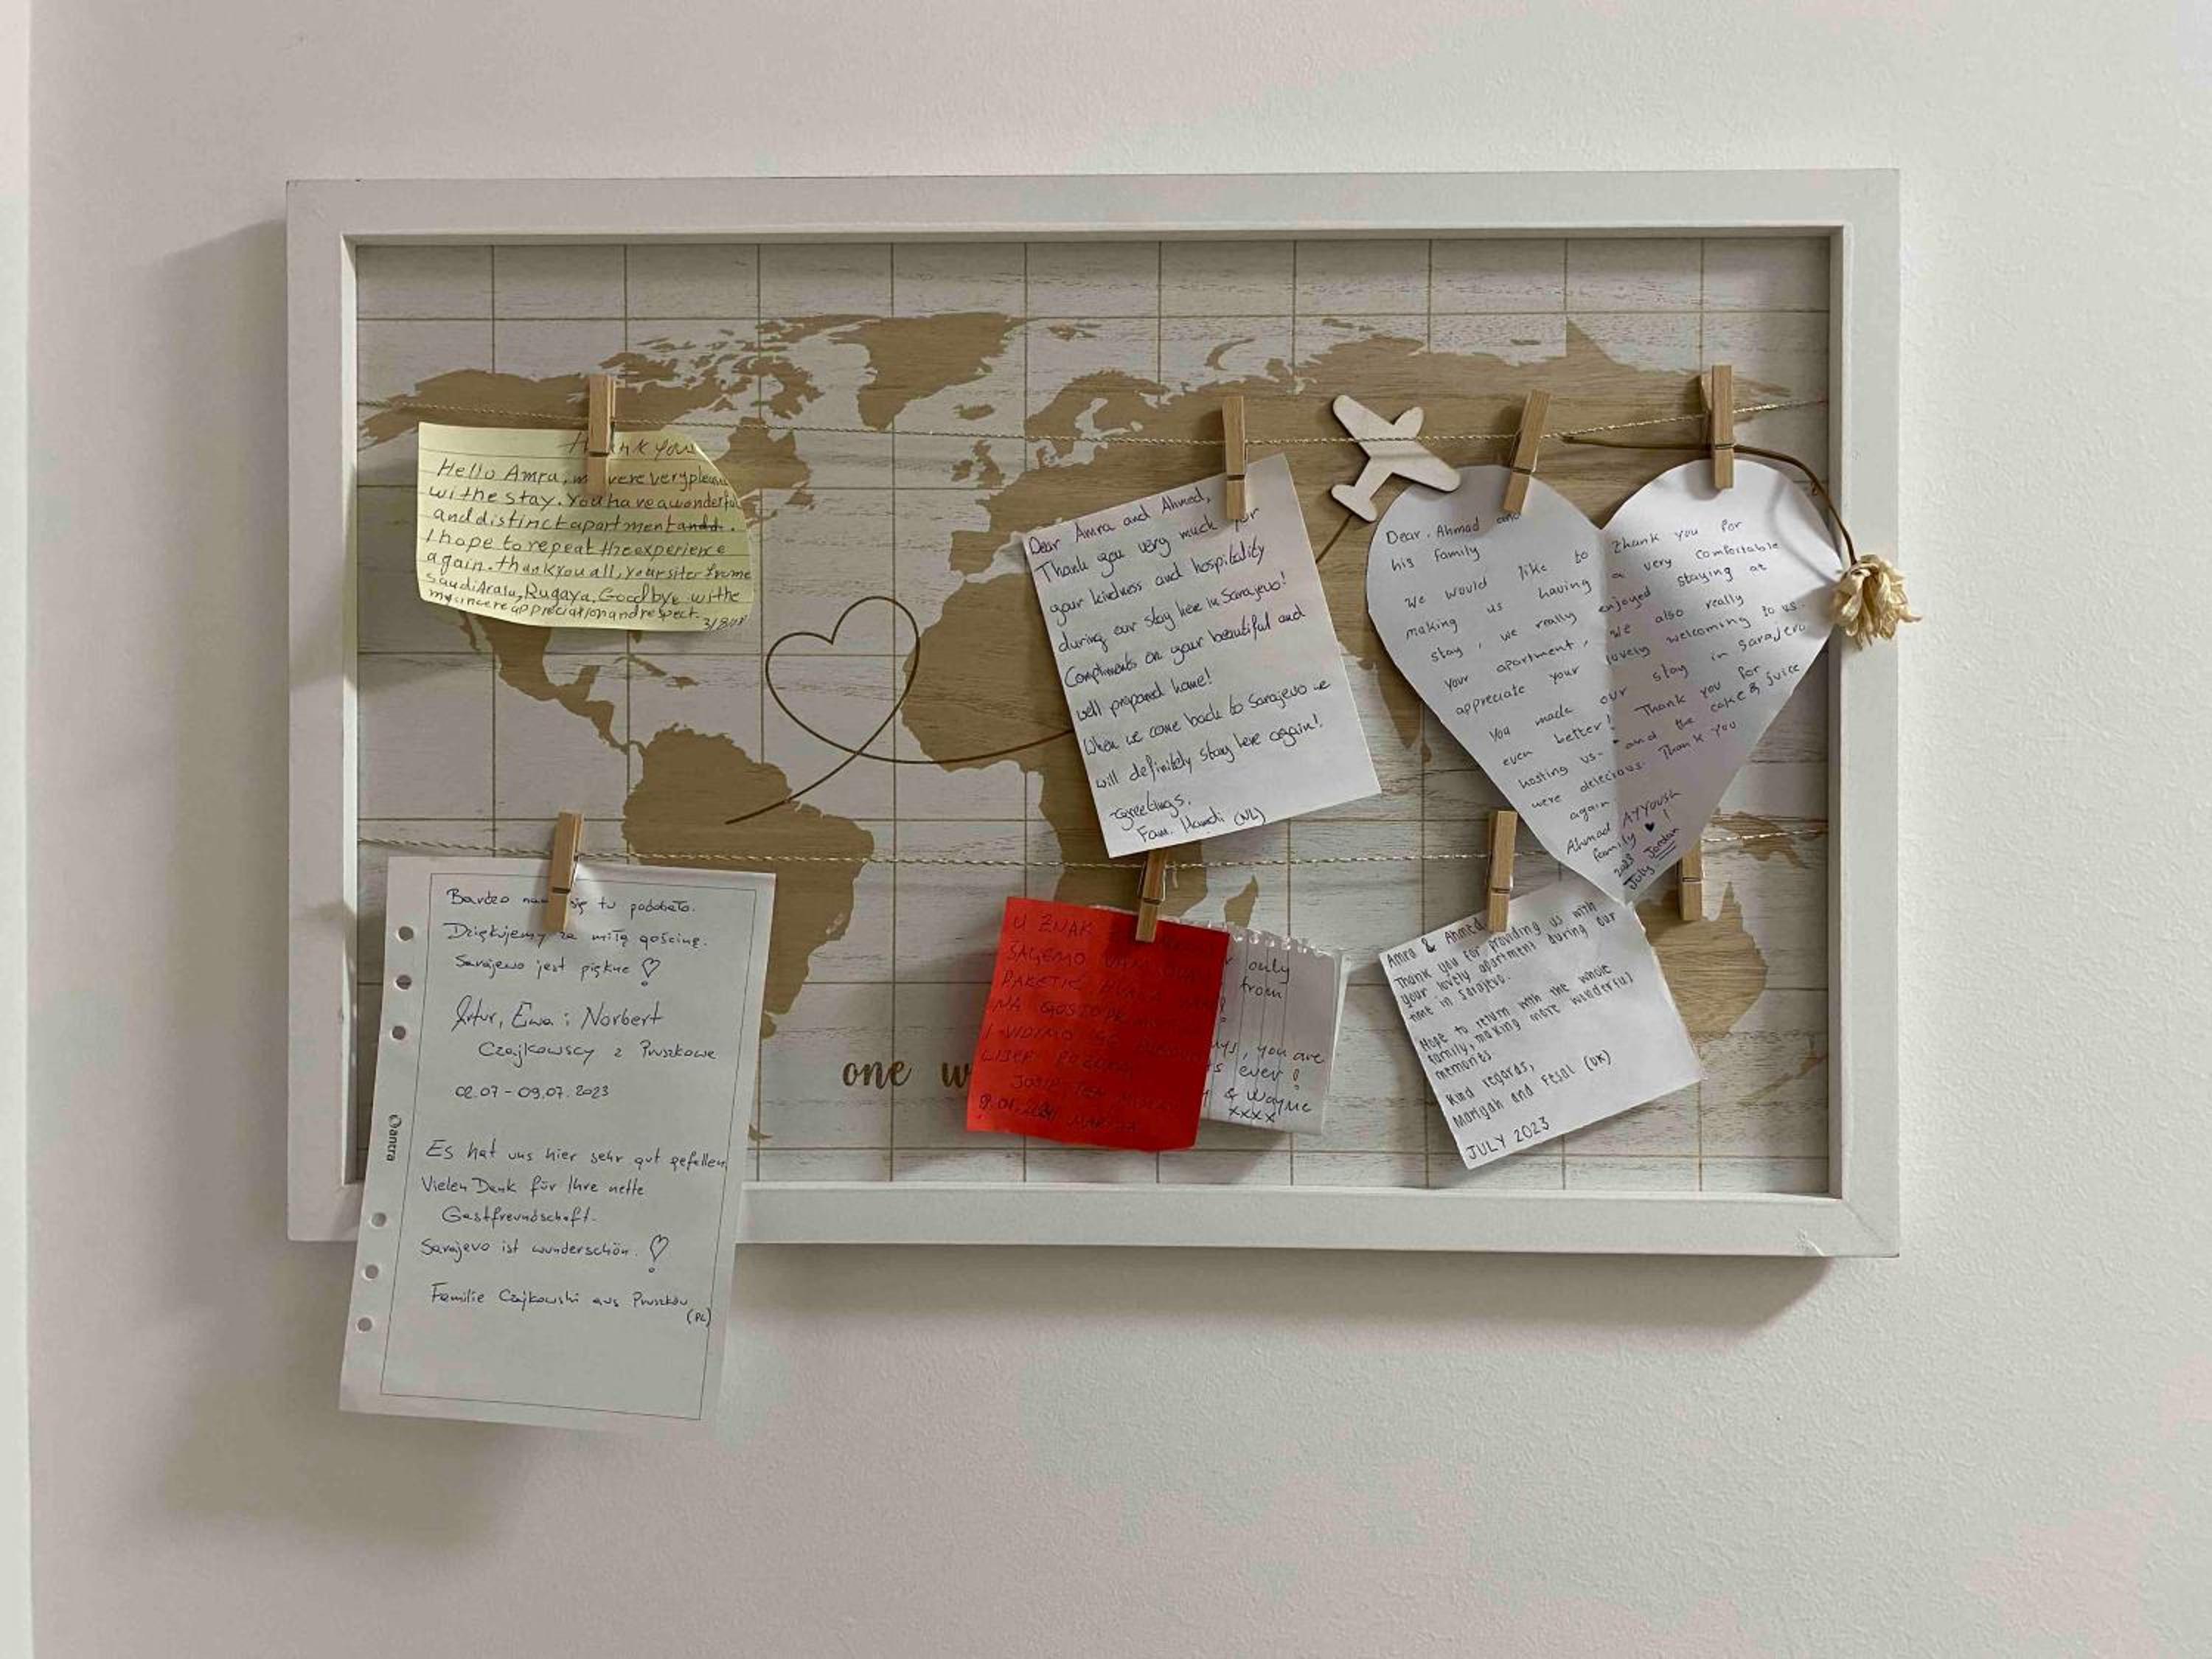 thank you
Hello Amra, we were very pleas
withe stay. You have a wonderful
and distinct apartment andd.
I hope to repeat the experience
again. thank you all, your siter frome
Saudi Arala, Ruqaya, Goodbye withe
my sincere appreciation and respect.
Dear Amra and Ahmed,
Thank you very much for
your kindness and hospitality
during our stay here in Sarajevo!
Compliments on your beautiful and
well prepared home!
When we come back to Sarajevo we
will definitely stay here again!
Greetings,
Fam. Hamdi (NL)
Dear, Ahmad and
his family
We would like to thank you for
making us having a very comfortable
stay, we really enjoyed staying at
your apartment, we also really
appreciate your lovely welcoming to us.
You made our stay in Sarajevo
even better! Thank you for
hosting us- and the cake & juice
were delecious. Thank you
again
Ahmad AYYOUSH
family ♥ !
2023 Jordan
July
Bardzo nam się tu podobało.
Dziękujemy za miłą gościnę.
Sarajewo jest piękne ♡
Artur, Ewa i Norbert
Czajkowscy z Pruszkowa
02.07 - 09.07.2023
Es hat uns hier sehr gut gefallen
Vielen Dank für Ihre nette
Gastfreundschaft.
Sarajevo ist wunderschön. ♡
Familie Czajkowski aus Pruszków
(PL)
antra
one w
U ZNAK
ŠALJEMO VAM
PAKETIĆ
NA GOSTOPR
I VIDIMO SE
LIJEP POZDRAV
only
from
ays, you are
s ever !
& Wayne
xxxx
Amra & Ahmed
Thank you for providing us with
your lovely apartment during our
time in Sarajevo.
Hope to return with the whole
family, making more wonderful
memories
Kind regards,
Mariyah and Fesal (UK)
JULY 2023